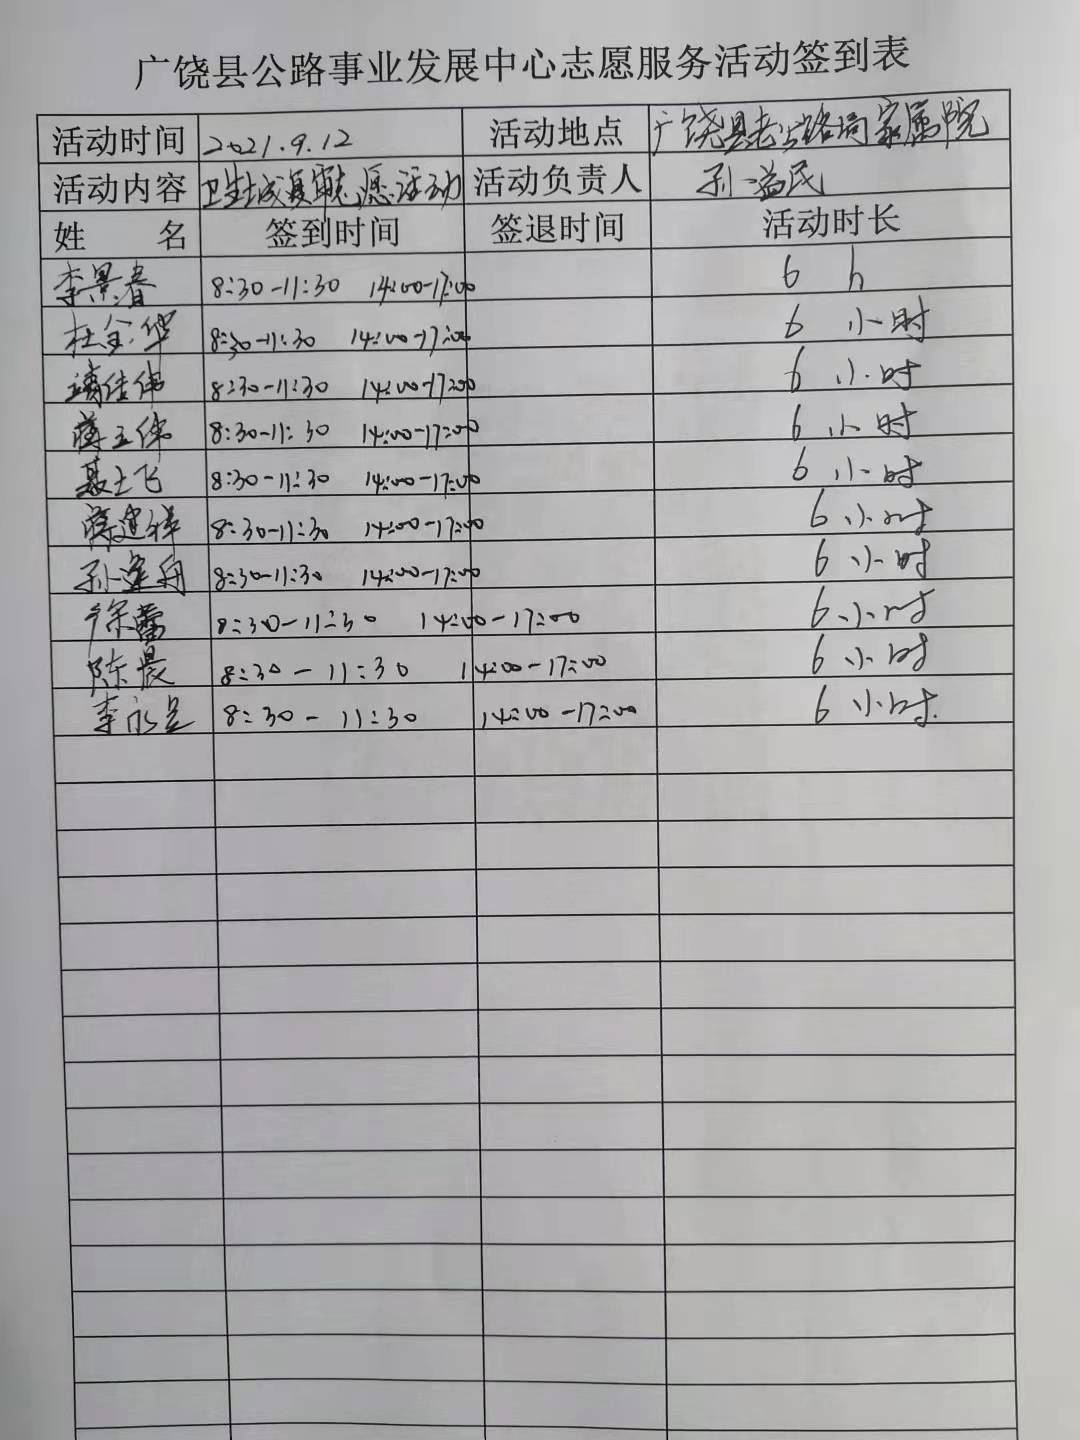 广饶县公路事业发展中心志愿服务活动签到表
活动时间 2021.9.12 活动地点 广饶县老公路局家属院
活动内容 卫生城复审志愿活动 活动负责人 孙溢民
姓 名 签到时间 签退时间 活动时长
李景春 8:30-11:30 14:00-17:00 6 h
杜金华 8:30-11:30 14:00-17:00 6 小时
靖佳伟 8:30-11:30 14:00-17:00 6 小时
蒋玉伟 8:30-11:30 14:00-17:00 6 小时
聂士飞 8:30-11:30 14:00-17:00 6 小时
蒋建祥 8:30-11:30 14:00-17:00 6 小时
孙莲舟 8:30-11:30 14:00-17:00 6 小时
徐蕾 8:30-11:30 14:00-17:00 6 小时
陈晨 8:30-11:30 14:00-17:00 6 小时
李永 8:30-11:30 14:00-17:00 6 小时.